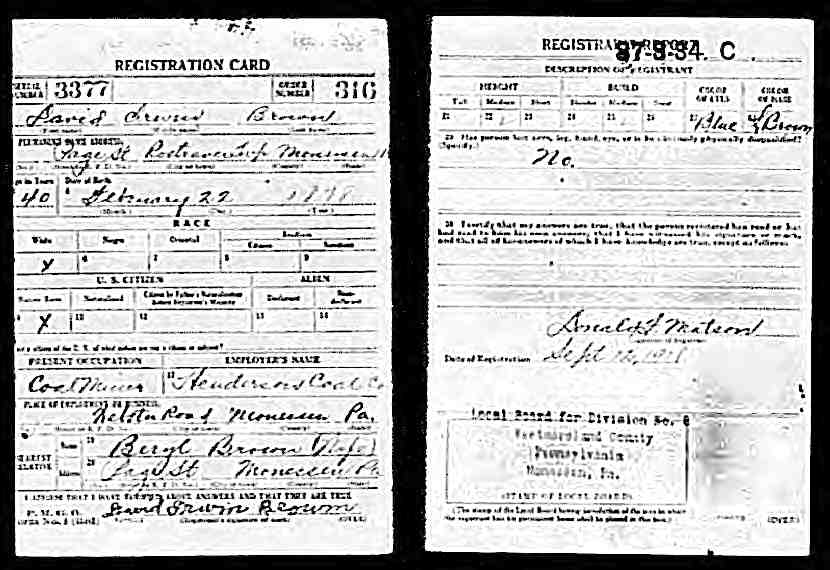 REGISTRATION CARD
SERIAL NUMBER 3377 ORDER NUMBER 316
David Irwin Brown
(First name) (Middle name) (Last name)
PERMANENT HOME ADDRESS:
Page St Rostraver Twp Monessen
Age in Years Date of Birth
40 February 22 1878
(Month.) (Day.) (Year.)
RACE
White Negro Oriental Indian
Citizen Noncitizen
X 6 7 8 9
U. S. CITIZEN ALIEN
Native Born Naturalized Citizen by Father's Naturalization Before Registrant's Majority Declarant Non-declarant
X 11 12 13 14
PRESENT OCCUPATION EMPLOYER'S NAME
Coal Miner Henderson Coal Co
PLACE OF EMPLOYMENT OR BUSINESS:
Road Monessen Pa.
NEAREST RELATIVE Name Beryl Brown (Wife)
Address Page St Monessen Pa
I AFFIRM THAT I HAVE VERIFIED ABOVE ANSWERS AND THAT THEY ARE TRUE
David Irwin Brown
(Registrant's signature or mark) (OVER)
REGISTRAR'S REPORT
37-3-34. C
DESCRIPTION OF REGISTRANT
HEIGHT BUILD COLOR OF EYES COLOR OF HAIR
Tall Medium Short Slender Medium Stout
21 22 23 24 25 26 27 Blue Brown
29 Has person lost arm, leg, hand, eye, or is he obviously physically disqualified?
(Specify.)
No.
30 I certify that my answers are true; that the person registered has read or has
had read to him his own answers; that I have witnessed his signature or mark,
and that all of his answers of which I have knowledge are true, except as follows:
Donald F. Matson
(Signature of Registrar)
Date of Registration Sept 12, 1918
Local Board for Division No. 8
Westmoreland County
Pennsylvania
Monessen, Pa.
(STAMP OF LOCAL BOARD)
(The stamp of the Local Board having jurisdiction of the area in which
the registrant has his permanent home shall be placed in this box.)
(OVER)